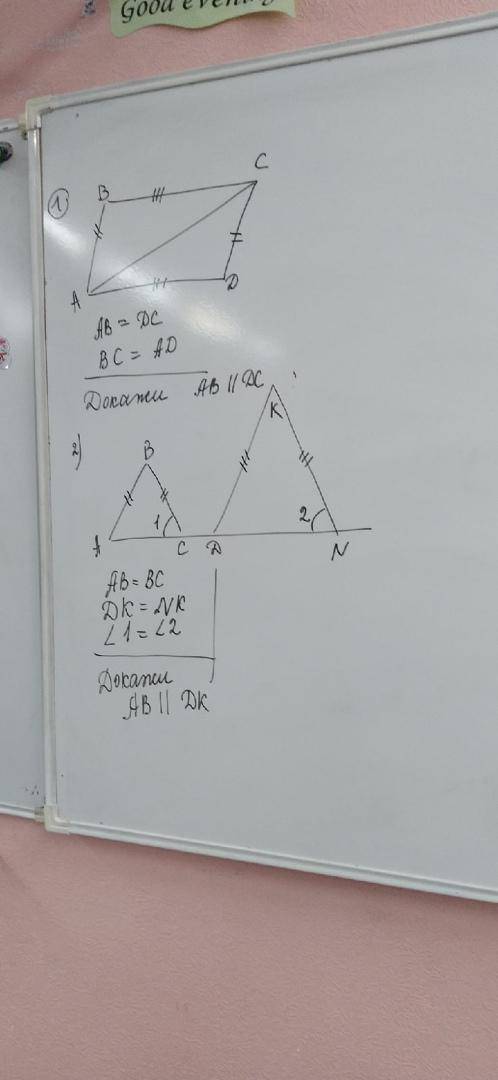 Good evening
1
B
C
A
D
AB = DC
BC = AD
Докажи AB || DC
2)
K
B
1
2
A
C
D
N
AB = BC
DK = NK
∠1 = ∠2
Докажи
AB || DK